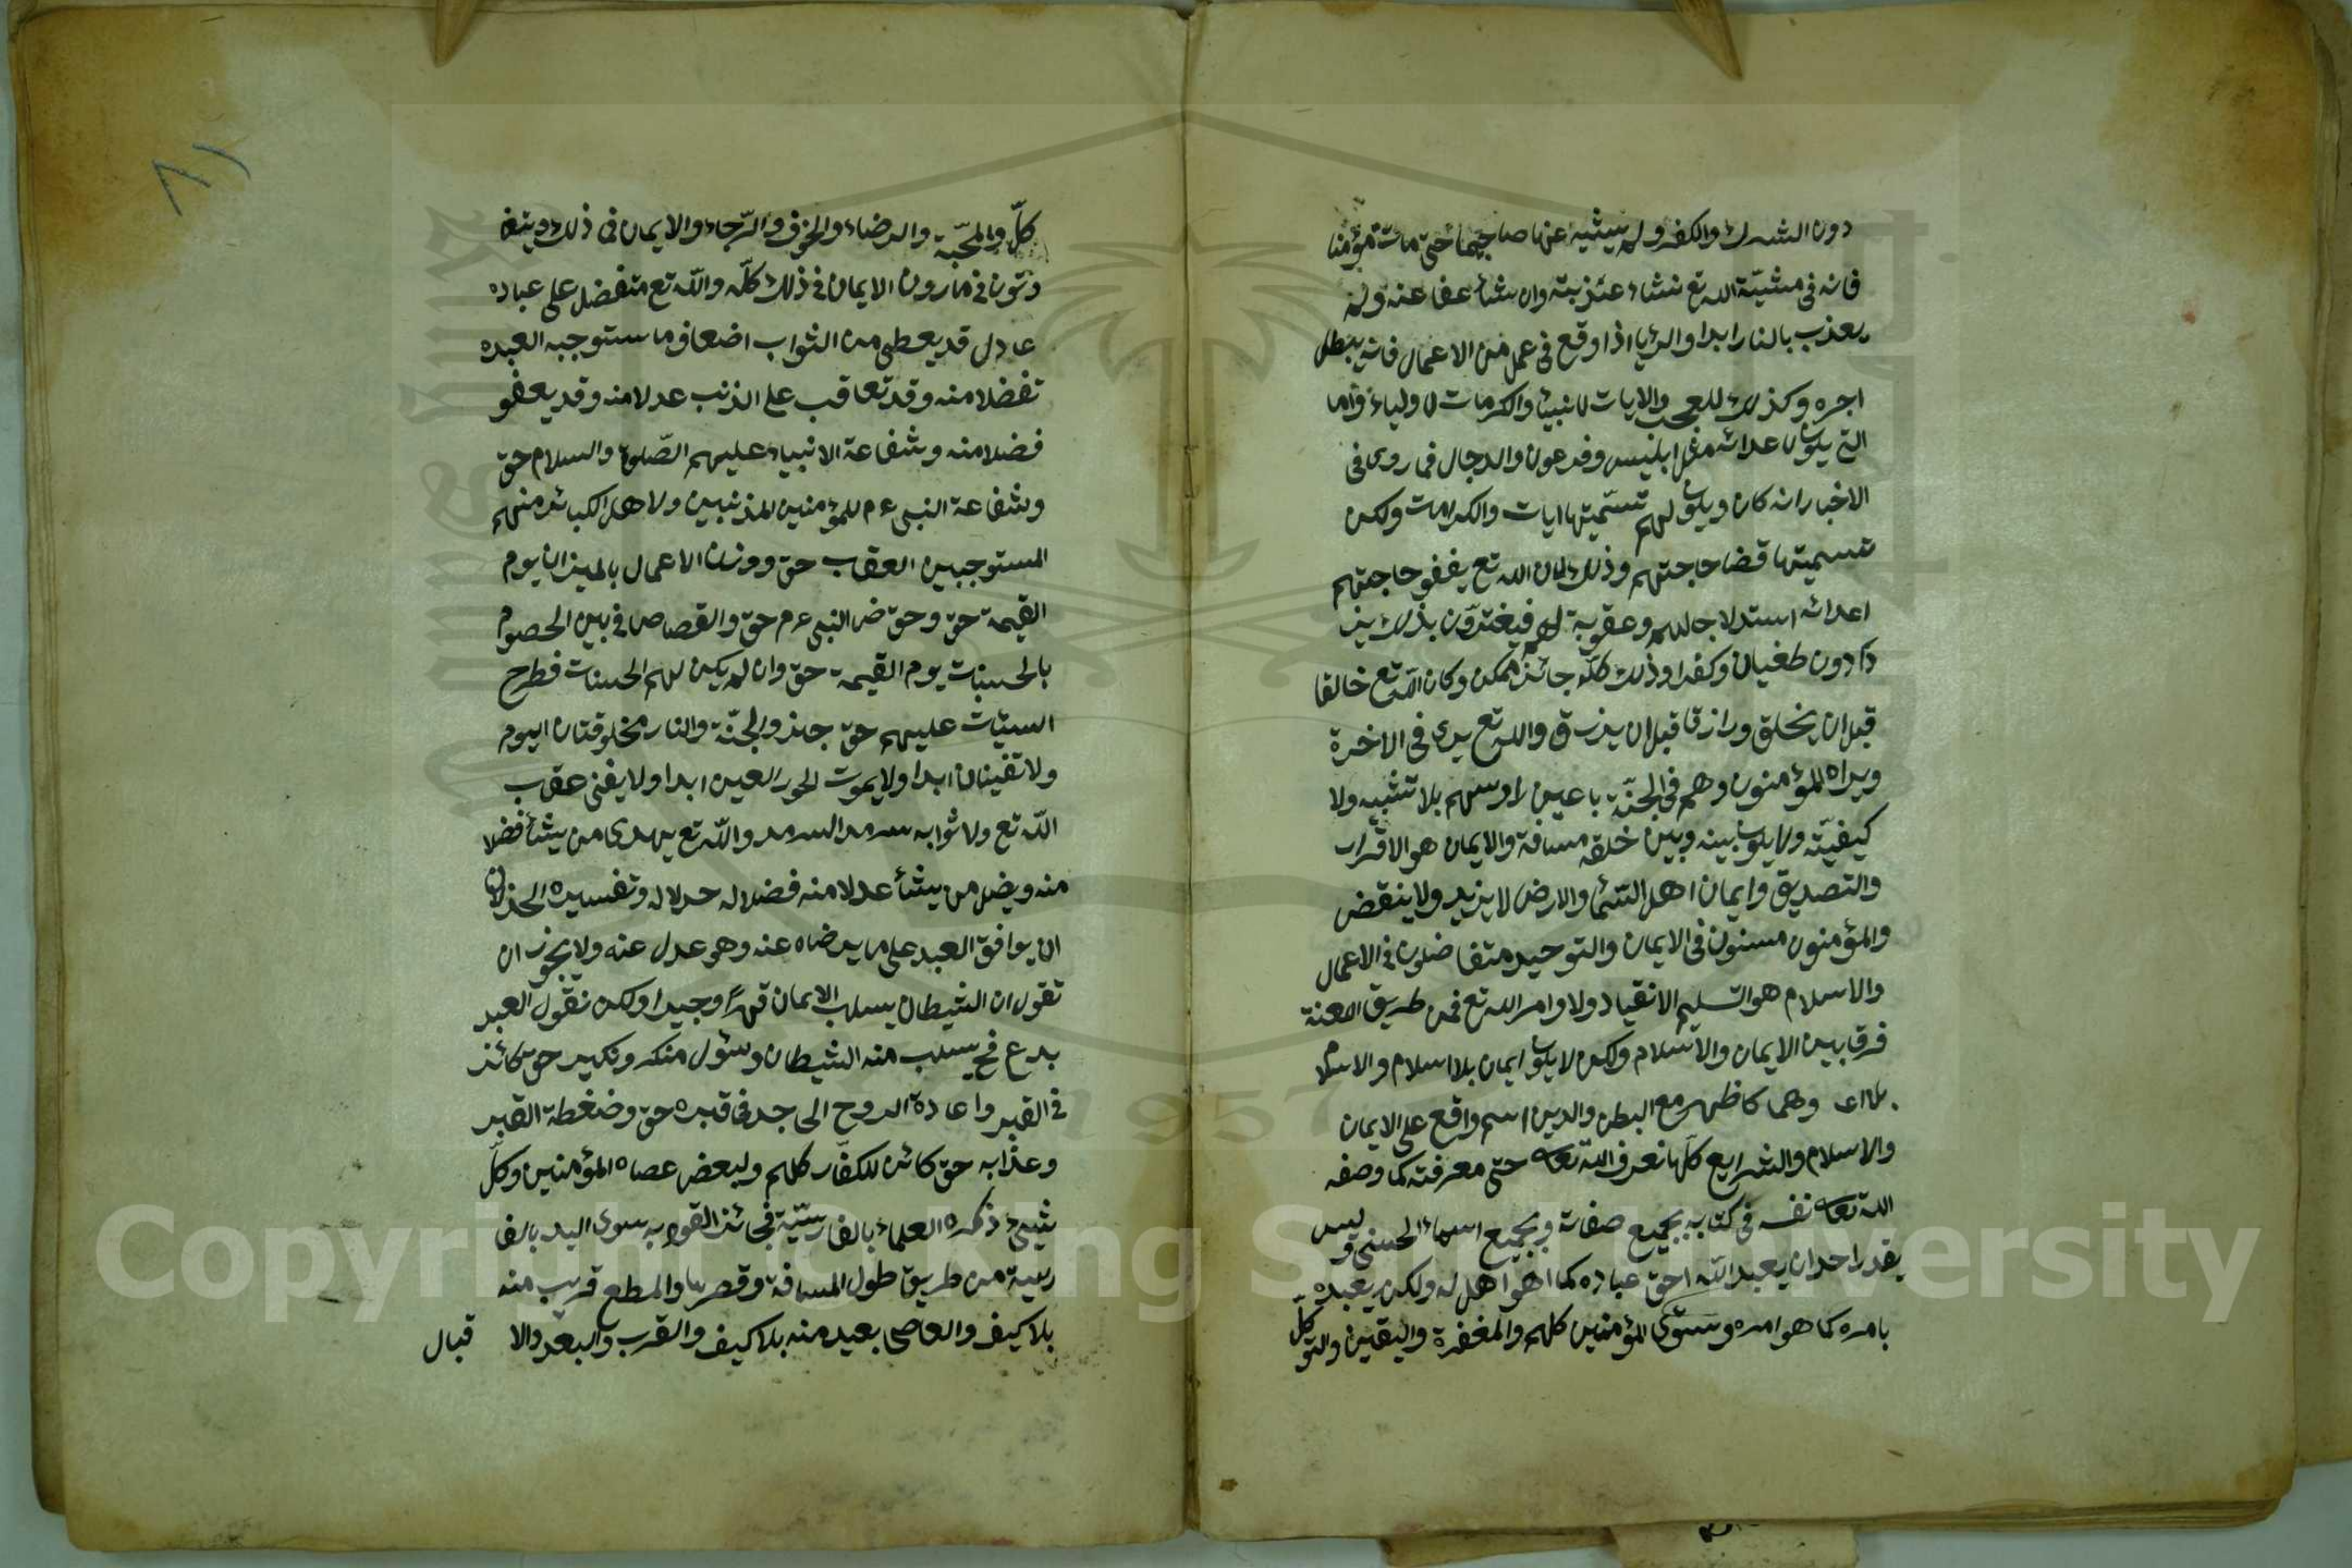 دون الشرك والكفر ولم يتب عنها صاحبها حتى مات مؤمنا
فانه في مشيّة الله تع نشاء عذبته وان شاء عفا عنه ولم
يعذب بالنار ابدا والريا اذا وقع في عمل من الاعمال فانه يبطل
اجره وكذلك للعجب والايات لانبياء والكرمات لاولياء واما
التي يكون لاعدائه مثل ابليس وفرعون والدجال فما روى في
الاخبار انه كان ويكون لهم تسمّيتها ايات والكرامت ولكن
تسميتها قضا حاجتهم وذلك لان الله تع يقضو حاجتهم
اعدائه استدلاجا لهم وعقوبة لهم فيغترّون بذلك يز
دادون طغيان وكفرا وذلك كلّه جائز ممكن وكان الله تع خالقا
قبل ان يخلق ورازقا قبل ان يرزق والله تع يرى في الاخرة
ويراه المؤمنون وهم في الجنّة باعين راوسهم بلا تشبيه ولا
كيفيّة ولا يكون بينه وبين خلقه مسافة والايمان هو الاقرار
والتصديق وايمان اهل السّماء والارض لا يزيد ولا ينقض
والمؤمنون مستون في الايمان والتوحيد متفاضلون في الاعمال
والاسلام هو التسليم الانقياد ولاوامر الله تع فمن طريق اللغة
فرقا بين الايمان والاسلام ولكن لا يكون ايمان بلا اسلام والاسلام
بلا اى وهما كا ظهر مع البطن والدين اسم واقع على الايمان
والاسلام والشرايع كلّها نعرف الله تعالى حتى معرفته كما وصفه
الله تعالى نفسه في كتابه بجميع صفاته وبجميع اسمائه الحسنى وليس
يقدر احد ان يعبد الله احق عباده كما هو اهل له ولكن يعبده
بامره كما هو امره وستوى المؤمنين كلهم والمغفرة واليقين والتوكّل
٨١
كلّ والمحبّة والرضاء والخوف والرّجاء والايمان في ذلك ويتفا
دتون في مادون الايمان في ذلك كلّه والله تع متفضل على عباده
عادل قد يعطى من الثواب اضعاف ما ستوجبه العبده
تفضلا منه وقد تعاقب على الذنب عدلا منه وقد يعفو
فضلا منه وشفاعة الانبياء عليهم الصّلوة والسلام حق
وشفاعة النبى ءم للمؤمنين المذنبين ولاهل الكبائر منهم
المستوجبين العقاب حق ووزن الاعمال بالميزان يوم
القيمة حق وحوض النبى ءم حق والقصاص في بين الخصوم
بالحسنات يوم القيمة حق وان لم يكن لهم الحسنات فطرح
السيّات عليهم حق جائز والجنّة والنار مخلوقتان اليوم
ولا تفينان ابدا ولا يموت الحور العين ابدا ولا يفنى عقاب
الله تع ولا ثوابه سرمدا لسرمد والله تع يهدى من يشاء فضلا
منه ويضل من يشاء عدلا منه فضلاله خدلاله وتفسيره الخذلان
ان يوافق العبد على ما يرضاه عنه وهو عدل عنه ولا يجوز ان
تقول ان الشيطان يسلب الايمان قهراً وجبيرا ولكن نقول العبد
يدع فح يسلب منه الشيطان وسئول منكر ونكير حق كائز
في القبر واعادة الروح الى جد في قبره حق وضغطة القبر
وعذابه حق كائن للكفّار كلهم ولبعض عصاه المؤمنين وكلّ
شئ ذكره العلماء بالفارسيّة فجائز القول به سوى اليد بالفا
رسية من طريق طول المسافة وقصرها والمطع قريب منه
بلا كيف والعاصى بعيد منه بلا كيف والقرب والبعد والا
قبال